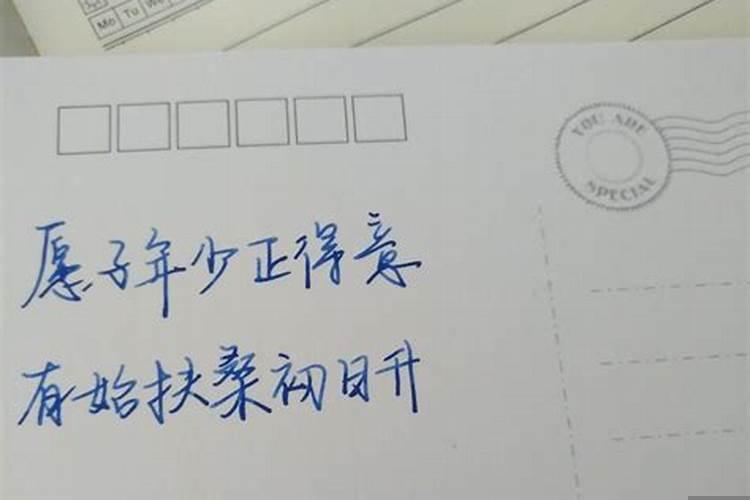 Mo Tu We
YOU ARE
SPECIAL
愿子年少正得意
有始扶桑初日升